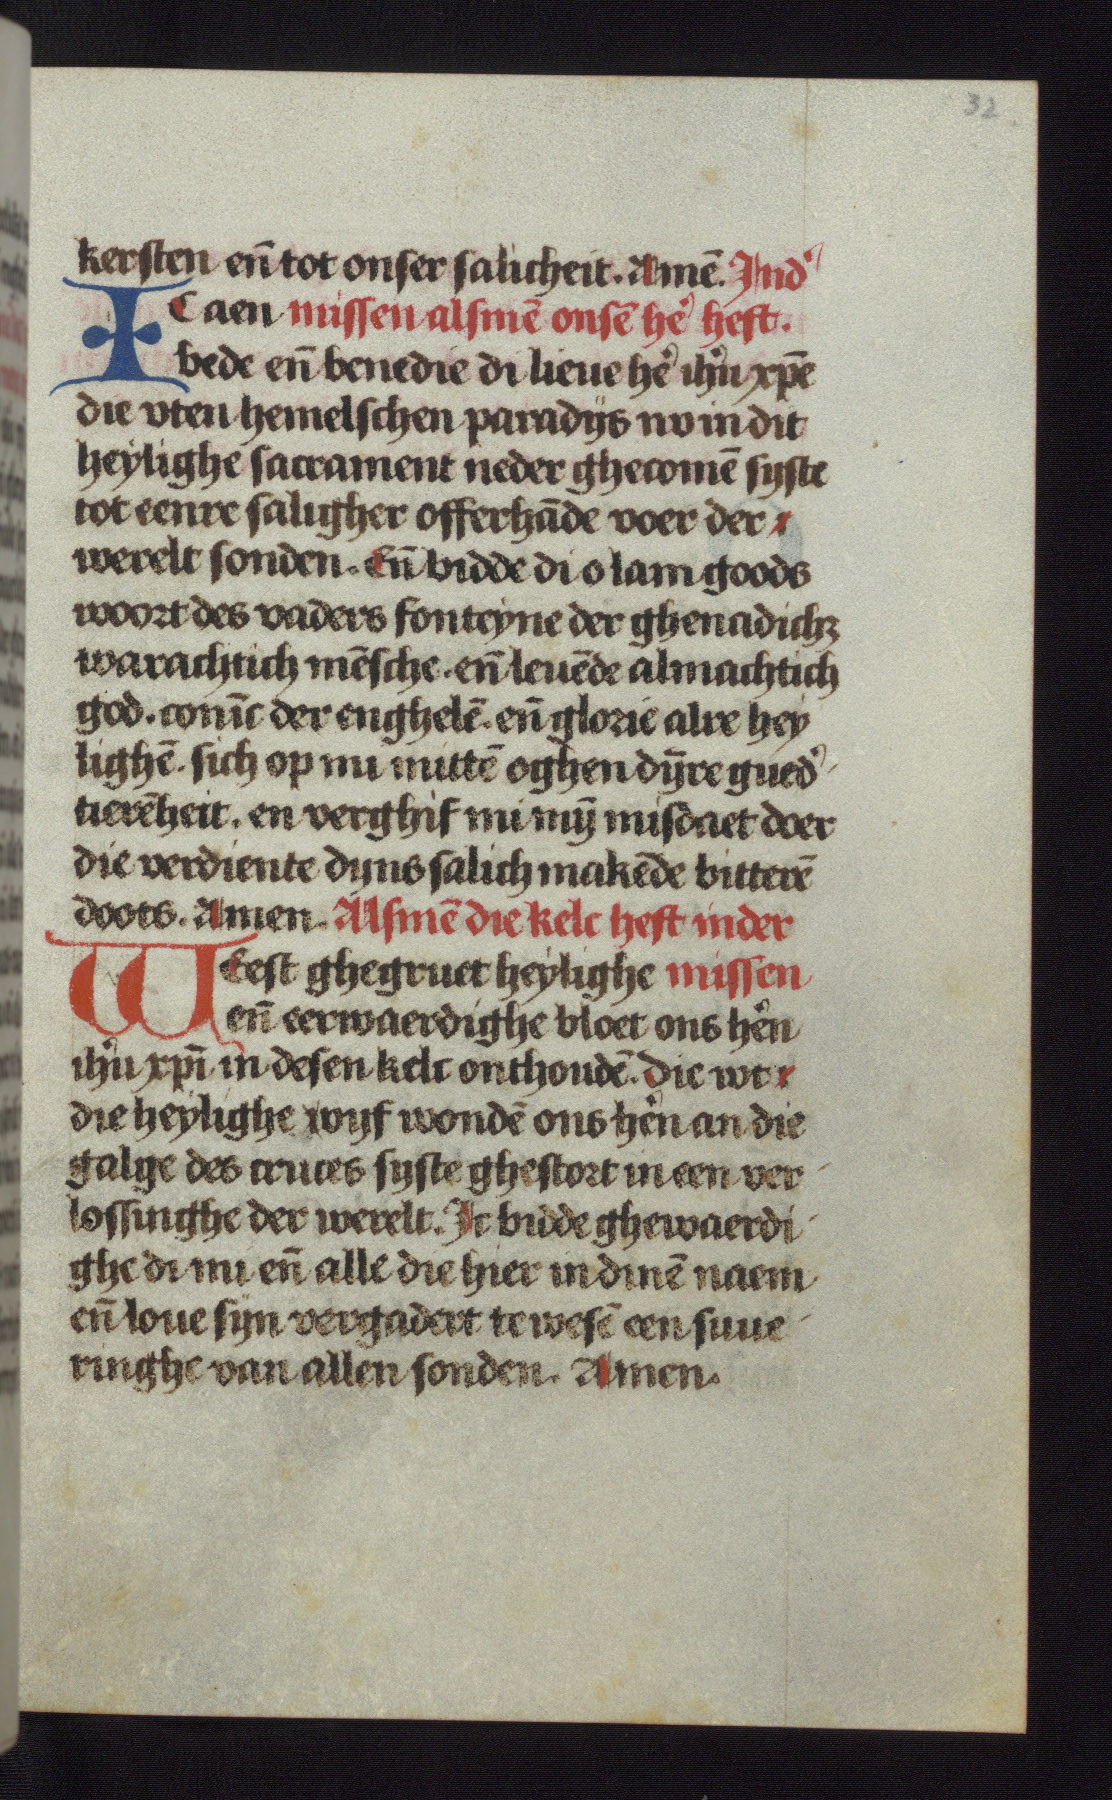 32
kersten en̄ tot onser salicheit. Amē. Ind'
IC aen missen alsmē onsē hē' heft.
bede en̄ benedie di lieue hē' ih'u xp̄e
die vten hemelschen paradÿs nv in dit
heÿlighe sacrament neder ghecomē syste
tot eenre saligher offerhāde voer der
werelt sonden. En̄ bidde di o lam goods
woort des vaders fonteyne der ghenadichꝫ
warachtich mēsche. en̄ leuēde almachtich
god. coninc der enghelē. en̄ glorie alre hey
lighē. sich op mi mittē oghen dȳre gued'
tierēheit. en verghif mi mȳ misdaet doer
die verdiente dyns salich makēde bitterē
doots. Amen. Alsmē die kelc heft inder
Weest ghegruet heÿlighe missen
en̄ eerwaerdighe bloet ons hē'n
ih'u xpī in desen kelc onthoudē. Die wt
die heÿlighe vyf wondē ons hē'n an die
galge des cruces syste ghestort in een ver
lossinghe der werelt. Ic bidde ghewaerdi
ghe di mi en̄ alle die hier in dinē naem
en̄ loue sÿn vergadert te wesē een suue
ringhe van allen sonden. Amen.